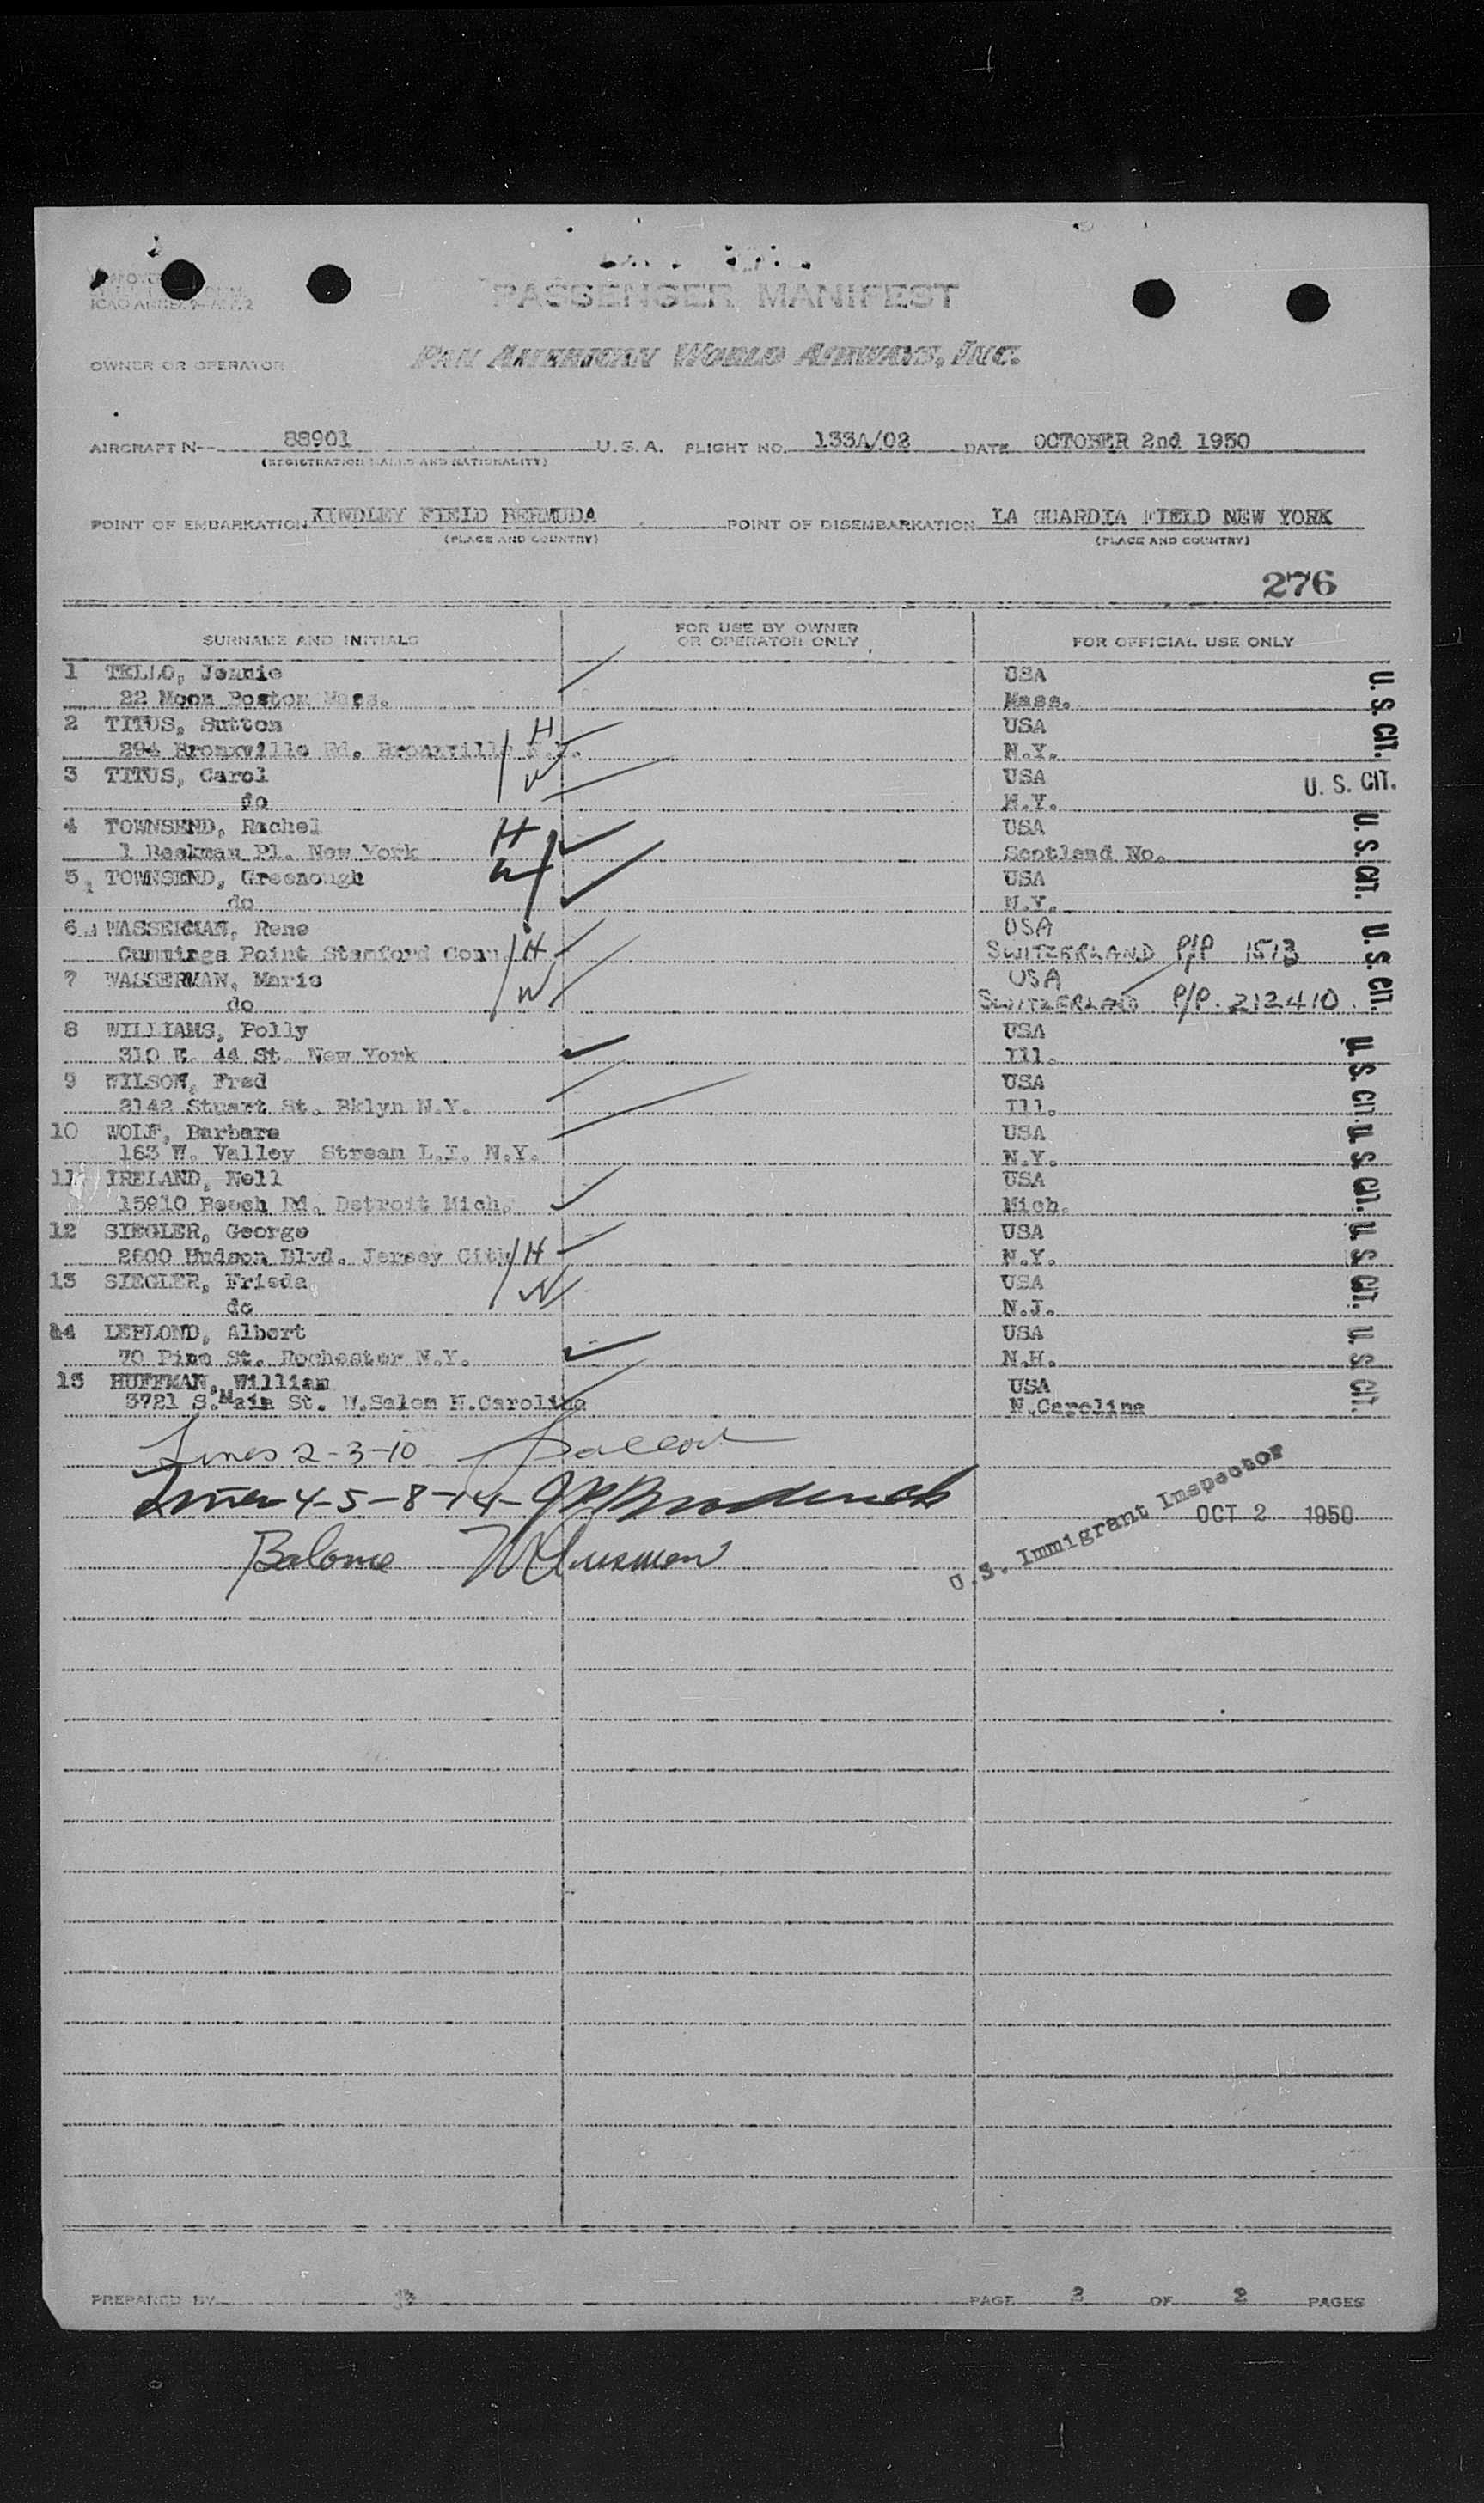 PASSENGER MANIFEST
OWNER OR OPERATOR PAN AMERICAN WORLD AIRWAYS, INC.
AIRCRAFT N-- 88901 U.S.A. FLIGHT NO. 133A/02 DATE OCTOBER 2nd 1950
(REGISTRATION MARKS AND NATIONALITY)
POINT OF EMBARKATION KINDLEY FIELD BERMUDA POINT OF DISEMBARKATION LA GUARDIA FIELD NEW YORK
(PLACE AND COUNTRY) (PLACE AND COUNTRY)
276
SURNAME AND INITIALS FOR USE BY OWNER OR OPERATOR ONLY FOR OFFICIAL USE ONLY
1 TELLO, Jennie USA
22 Moon Boston Mass. Mass. U.S. CIT.
2 TITUS, Sutton H USA
294 Bronxville Rd. Bronxville N.Y. N.Y.
3 TITUS, Carol W USA U. S. CIT.
do N.Y.
4 TOWNSEND, Rachel H USA
1 Beekman Pl. New York Scotland No. U.S. CIT.
5 TOWNSEND, Greenough W USA
do N.Y.
6 WASSERMAN, Rene USA
Cummings Point Stamford Conn. H SWITZERLAND P/P 1513 U.S. CIT.
7 WASSERMAN, Marie W USA
do SWITZERLAND P/P. 212410
8 WILLIAMS, Polly USA
310 E. 44 St. New York Ill. U.S. CIT.
9 WILSON, Fred USA
2142 Stuart St. Bklyn N.Y. Ill.
10 WOLF, Barbara USA
163 W. Valley Stream L.I. N.Y. N.Y. U.S CIT.
11 IRELAND, Nell USA
15910 Beech Rd. Detroit Mich. Mich.
12 SIEGLER, George USA
2600 Hudson Blvd. Jersey City H N.Y. U.S CIT.
13 SIEGLER, Frieda W USA
do N.J.
14 LEBLOND, Albert USA
70 Pine St. Rochester N.Y. N.H. U.S CIT.
15 HUFFMAN, William USA
3721 S.Main St. W.Salem N.Carolina N.Carolina
Lines 2-3-10
Lines 4-5-8-14-
Balance
U.S. Immigrant Inspector OCT 2 1950
PREPARED BY PAGE 2 OF 2 PAGES